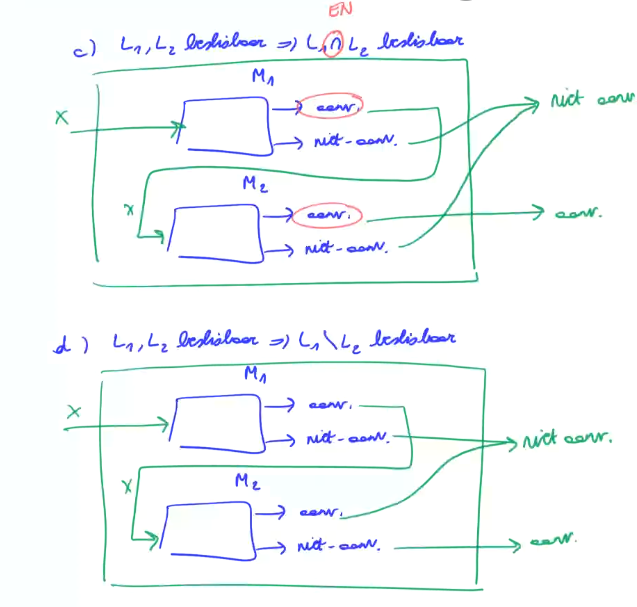 EN
c) L₁, L₂ beslisbaar ⇒ L₁ ∩ L₂ beslisbaar
M₁
x
aanv.
niet-aanv.
niet aanv
M₂
x
aanv.
aanv.
niet-aanv.
d) L₁, L₂ beslisbaar ⇒ L₁ \ L₂ beslisbaar
M₁
x
aanv.
niet-aanv.
niet aanv.
x
M₂
aanv.
niet-aanv.
aanv.